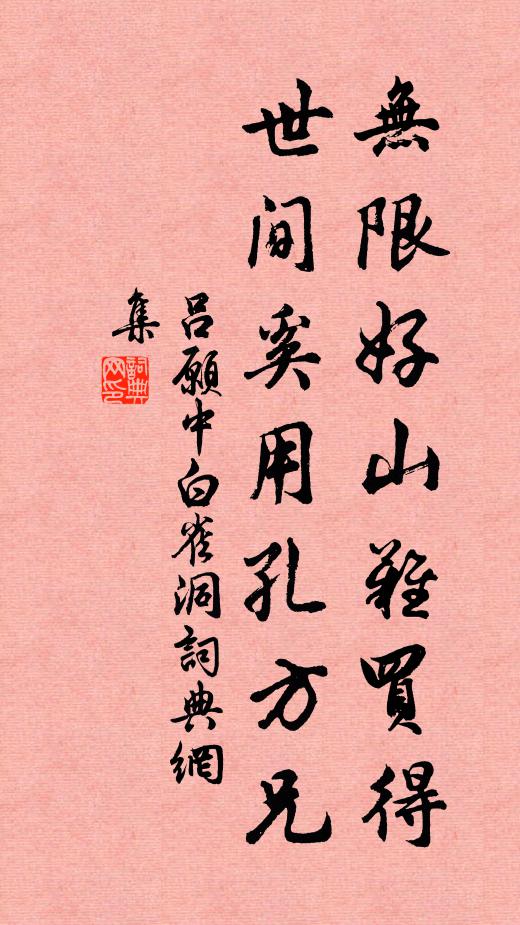 無限好山難買得
世間奚用孔方兄
呂願中白雀洞詞典網
集
詞典
网印